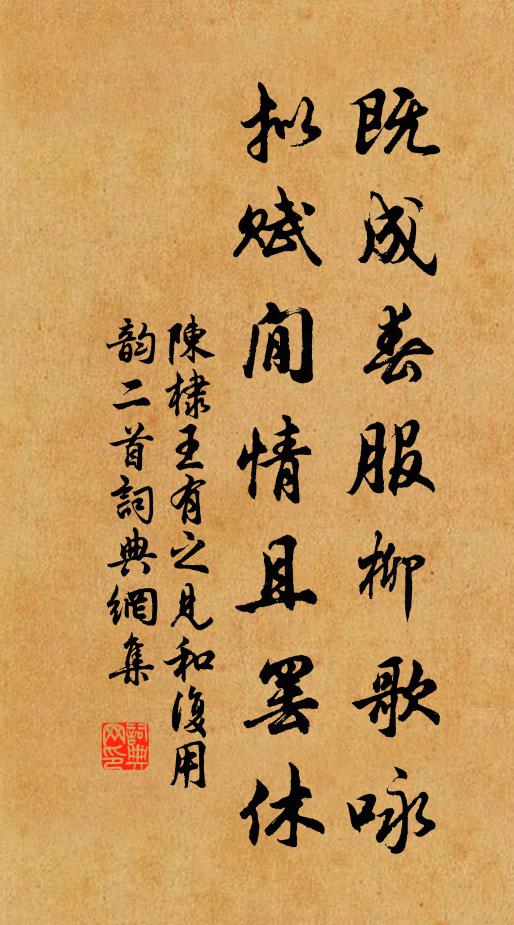 既成春服柳歌咏
拟赋閒情且罢休
陳棣王有之見和復用
韵二首詞典網集
詞典网印